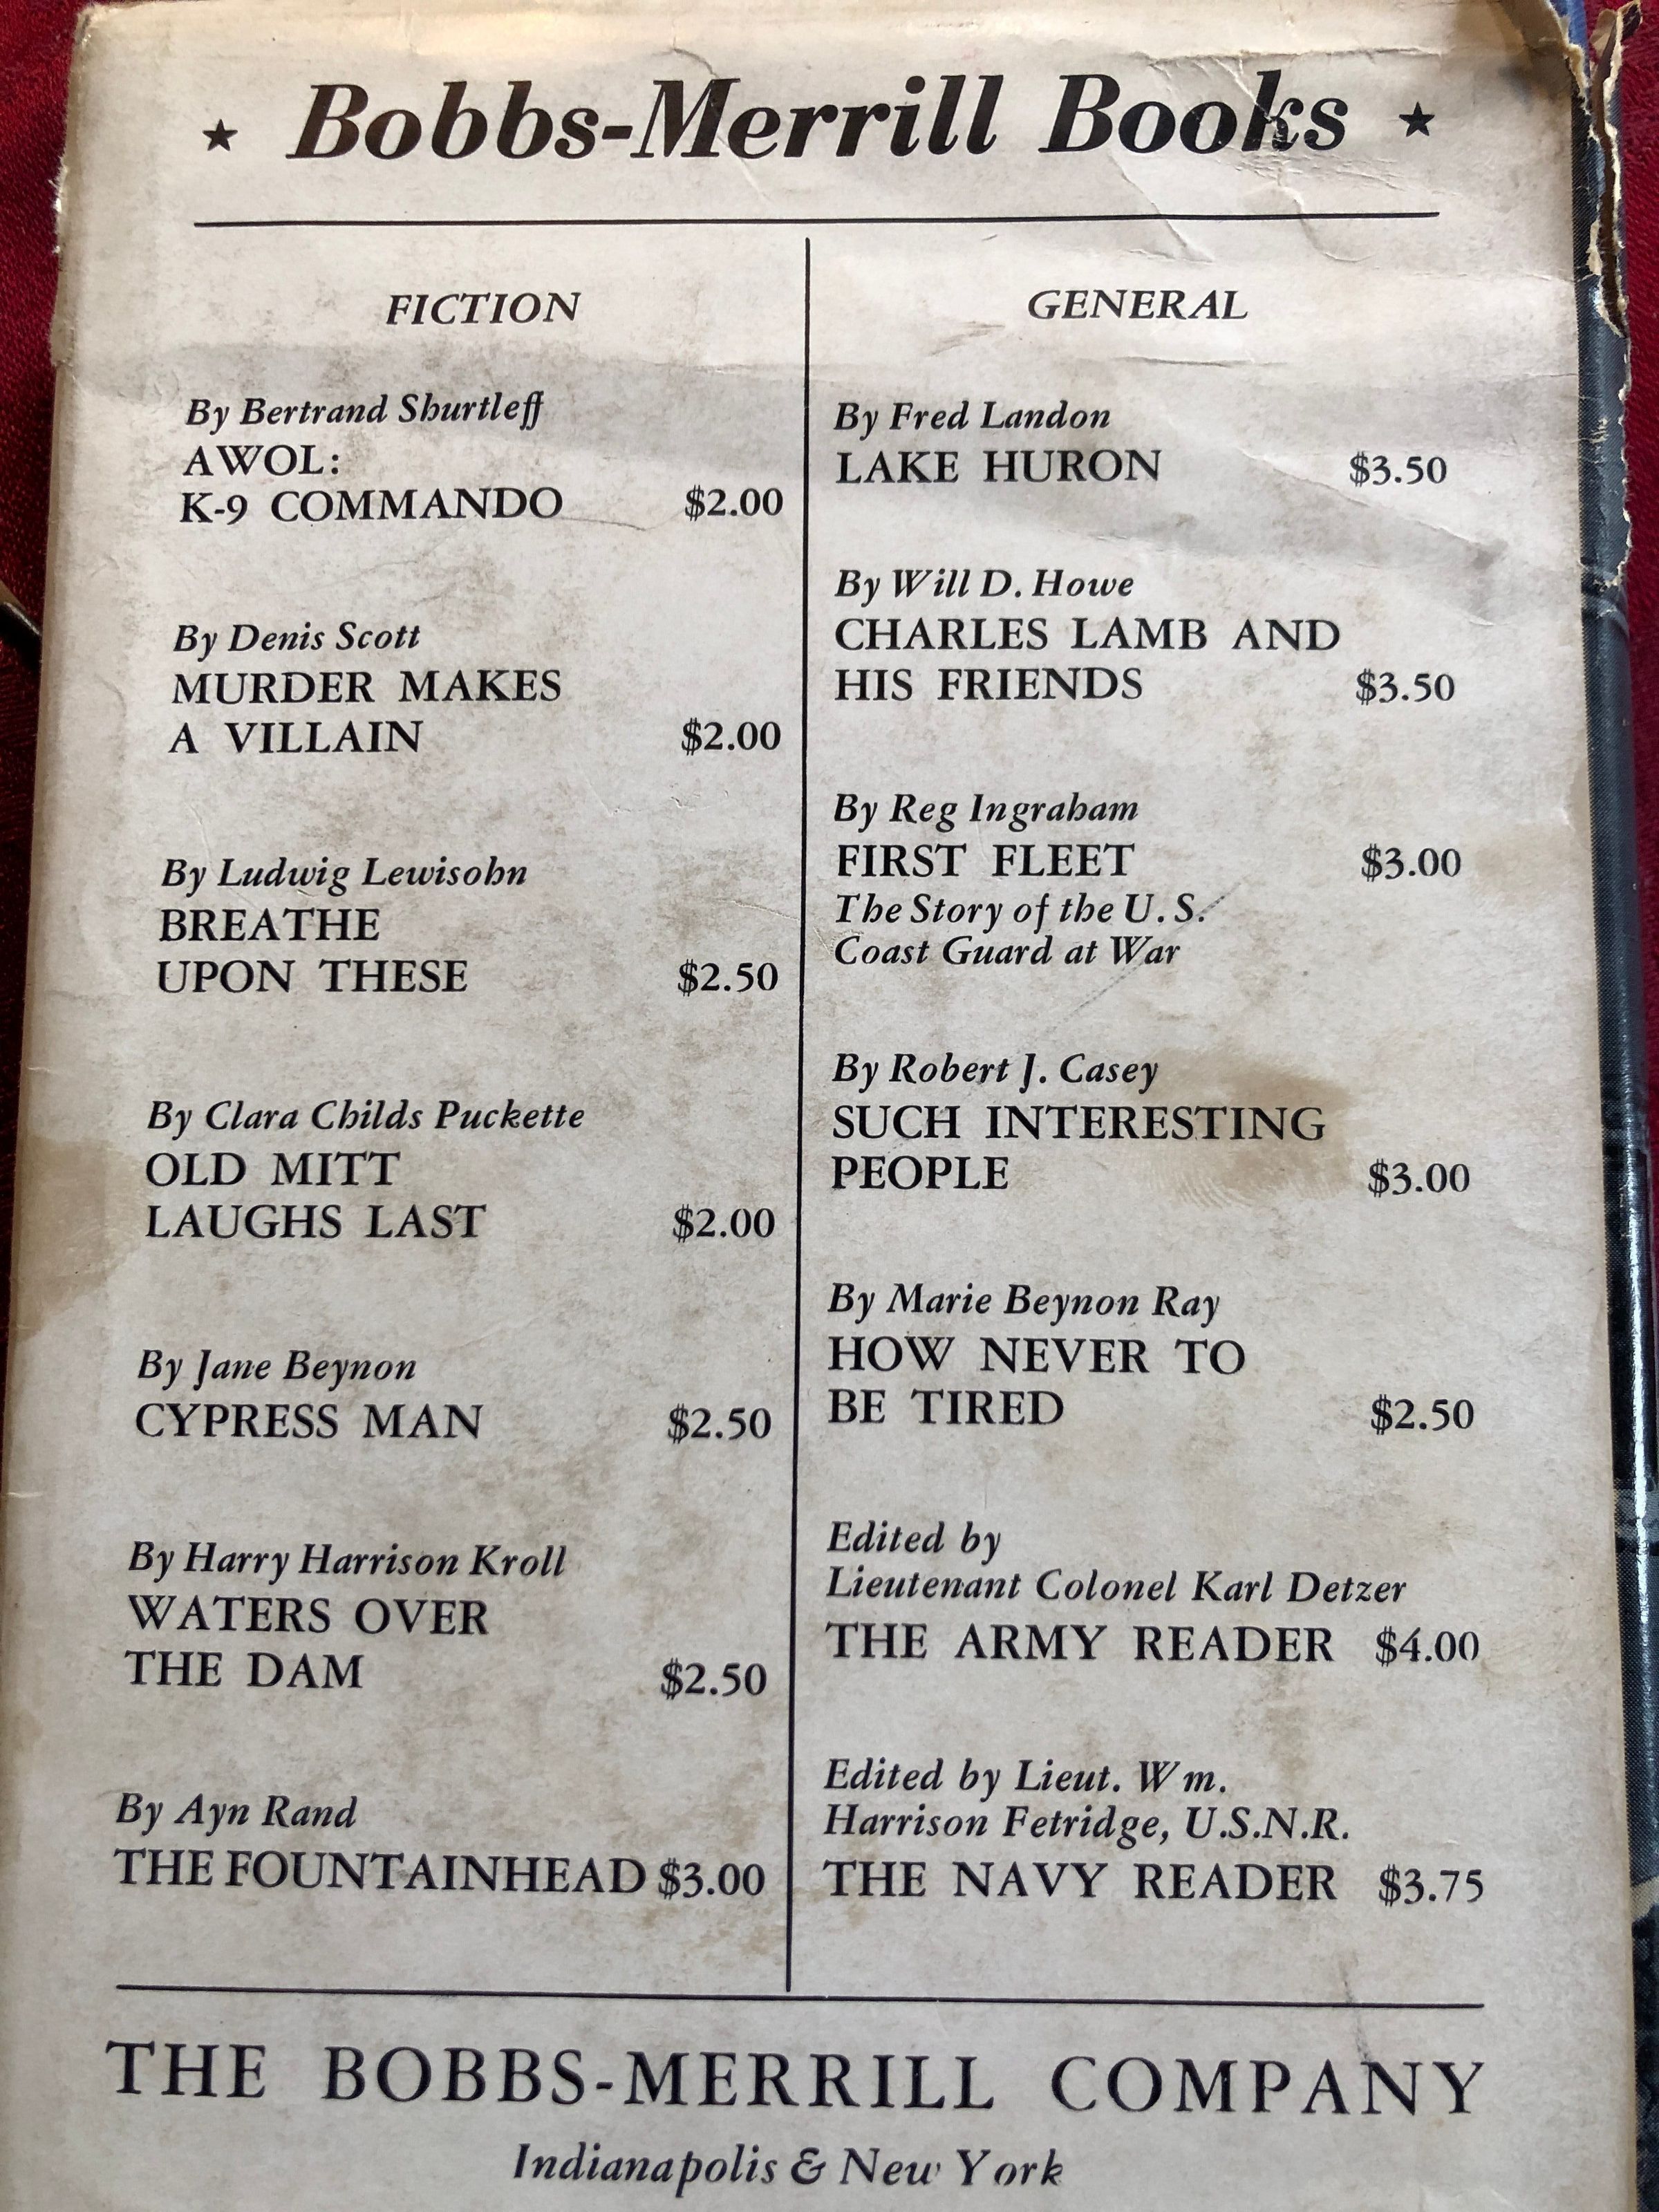 ★ Bobbs-Merrill Books ★
FICTION
By Bertrand Shurtleff
AWOL:
K-9 COMMANDO $2.00
By Denis Scott
MURDER MAKES
A VILLAIN $2.00
By Ludwig Lewisohn
BREATHE
UPON THESE $2.50
By Clara Childs Puckette
OLD MITT
LAUGHS LAST $2.00
By Jane Beynon
CYPRESS MAN $2.50
By Harry Harrison Kroll
WATERS OVER
THE DAM $2.50
By Ayn Rand
THE FOUNTAINHEAD $3.00
GENERAL
By Fred Landon
LAKE HURON $3.50
By Will D. Howe
CHARLES LAMB AND
HIS FRIENDS $3.50
By Reg Ingraham
FIRST FLEET $3.00
The Story of the U. S.
Coast Guard at War
By Robert J. Casey
SUCH INTERESTING
PEOPLE $3.00
By Marie Beynon Ray
HOW NEVER TO
BE TIRED $2.50
Edited by
Lieutenant Colonel Karl Detzer
THE ARMY READER $4.00
Edited by Lieut. Wm.
Harrison Fetridge, U.S.N.R.
THE NAVY READER $3.75
THE BOBBS-MERRILL COMPANY
Indianapolis & New York